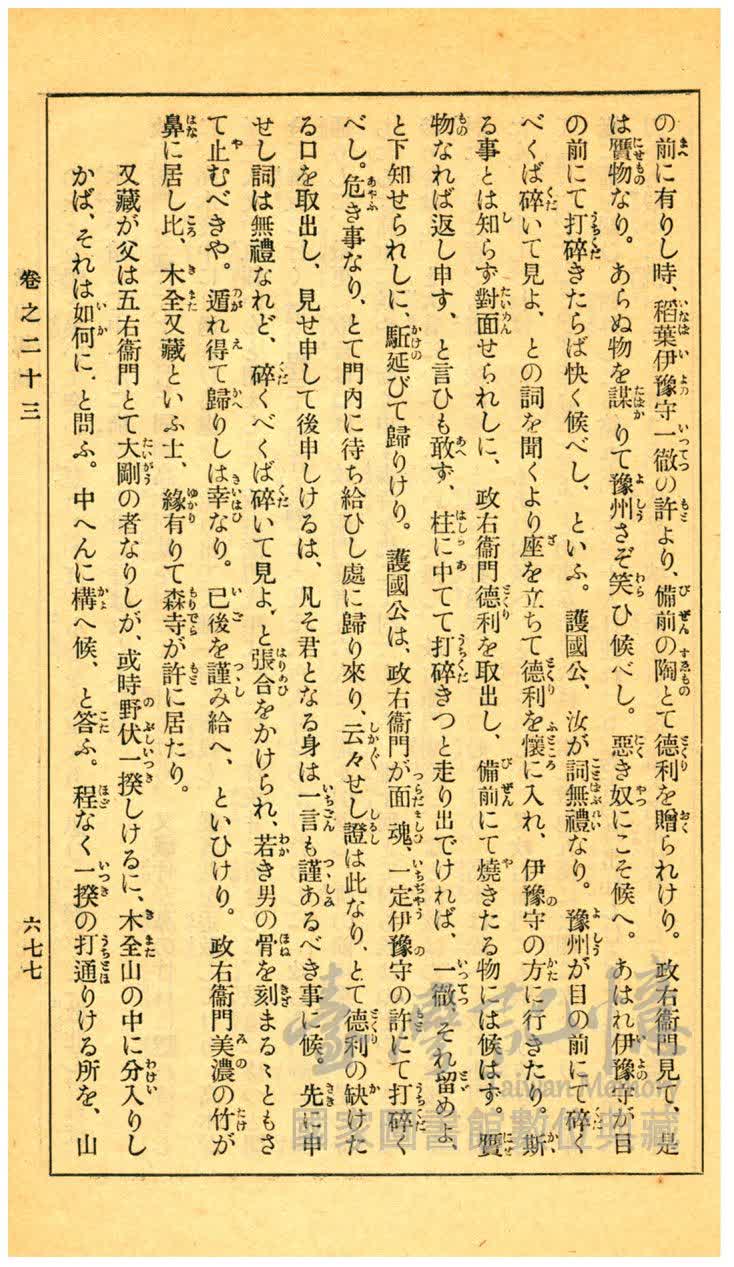 の前に有りし時、稻葉伊豫守一徹の許より、備前の陶とて德利を贈られけり。政右衞門見て、是
は贋物なり。あらぬ物を謀りて豫州さぞ笑ひ候べし。惡き奴にこそ候へ。あはれ伊豫守が目
の前にて打碎きたらば快く候べし、といふ。護國公、汝が詞無禮なり。豫州が目の前にて碎く
べくば碎いて見よ、との詞を聞くより座を立ちて德利を懷に入れ、伊豫守の方に行きたり。斯
る事とは知らず對面せられしに、政右衞門德利を取出し、備前にて燒きたる物には候はず。贋
物なれば返し申す、と言ひも敢ず、柱に中てて打碎きつと走り出でければ、一徹、それ留めよ、
と下知せられしに、駈延びて歸りけり。護國公は、政右衞門が面魂、一定伊豫守の許にて打碎く
べし。危き事なり、とて門內に待ち給ひし處に歸り來り、云々せし證は此なり、とて德利の缺けた
る口を取出し、見せ申して後申しけるは、凡そ君となる身は一言も謹あるべき事に候。先に申
せし詞は無禮なれど、碎くべくば碎いて見よ、と張合をかけられ、若き男の骨を刻まるゝともさ
て止むべきや。遁れ得て歸りしは幸なり。已後を謹み給へ、といひけり。政右衞門美濃の竹が
鼻に居し比、木全又藏といふ士、緣有りて森寺が許に居たり。
又藏が父は五右衞門とて大剛の者なりしが、或時野伏一揆しけるに、木全山の中に分入りし
かば、それは如何に、と問ふ。中へんに構へ候、と答ふ。程なく一揆の打通りける所を、山
卷之二十三
六七七
臺灣記憶
Taiwan Memory
國家圖書館數位典藏